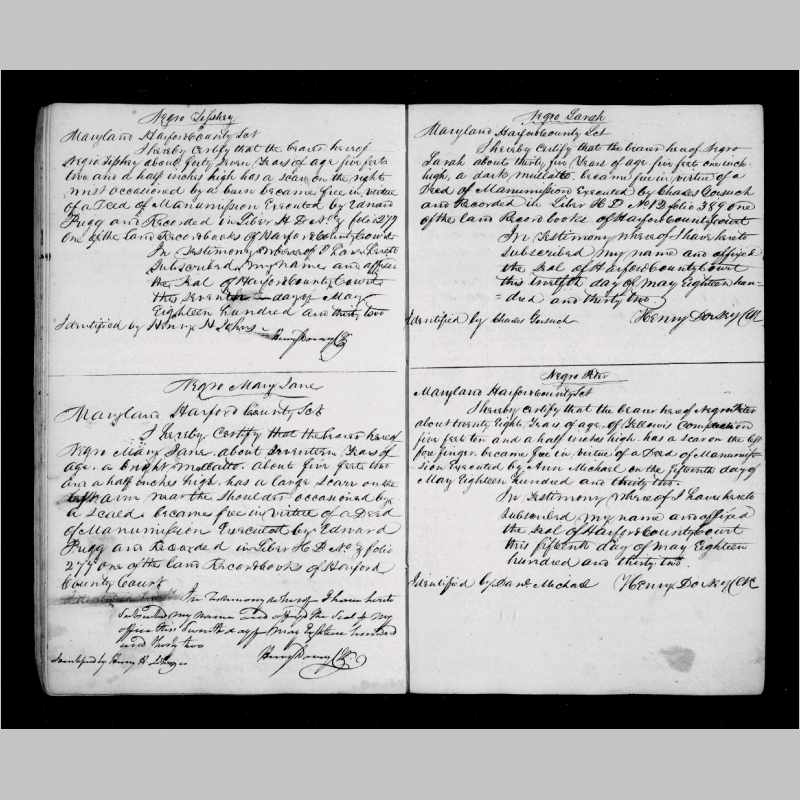 Negro Zephry
Maryland Harford County Sct
I hereby certify that the bearer hereof
Negro Zephry about forty seven years of age five feet
two and a half inches high has a scar on the right
wrist occasioned by a burn became free in virtue
of a Deed of Manumission Executed by Edward
Pugg and Recorded in Liber H D No. 3 folio 277
One of the Land Record books of Harford County Court
In Testimony whereof I have hereto
Subscribed my name and affixed
the Seal of Harford County Court
this Seventh day of May
Eighteen hundred and thirty two
Identified by Henry H Johns
Henry Dorsey Clk
Negro Mary Jane
Maryland Harford County Sct
I hereby Certify that the bearer hereof
Negro Mary Jane about Seventeen Years of
age, a bright mulatto, about five feet two
and a half inches high, has a large scar on the
left arm near the shoulder occasioned by
a scald, became free in virtue of a Deed
of Manumission Executed by Edward
Pugg and Recorded in Liber H D No. 3 folio
277 one of the land Record books of Harford
County Court
In Testimony whereof I have hereto
subscribed my name and affixed the Seal of my
office this Seventh day of May Eighteen hundred
and thirty two
Identified by Henry H.
Henry Dorsey Clk.
Negro Sarah
Maryland Harford County Sct
I hereby certify that the bearer hereof Negro
Sarah about thirty five Years of age five feet one inch
high, a dark mulatto became free in virtue of a
Deed of Manumission Executed by Charles Gorsuch
and Recorded in Liber H D No. 12 folio 389 One
of the land Record books of Harford County Court
In Testimony whereof I have hereto
subscribed my name and affixed
the Seal of Harford County Court
this twelfth day of May Eighteen hun-
=dred and thirty two
Identified by Charles Gorsuch Henry Dorsey Clk
Negro Peter
Maryland Harford County Sct
I hereby certify that the bearer hereof Negro Peter
about twenty Eight Years of age, of Yellowis Complection
five feet ten and a half inches high, has a scar on the left
fore finger, became free in virtue of a Deed of Manumis-
sion Executed by Ann Michael on the fifteenth day of
May Eighteen hundred and thirty two.
In Testimony whereof I have hereto
subscribed my name and affixed
the Seal of Harford County Court
this fifteenth day of May Eighteen
hundred and thirty two.
Identified by Danl Michael Henry Dorsey Clk